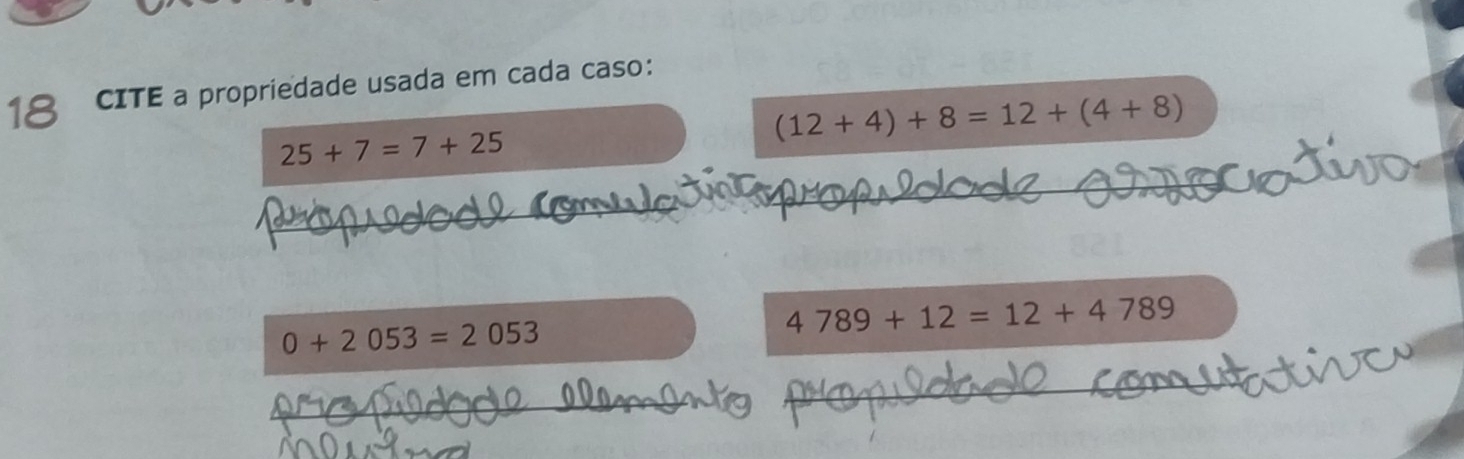 18 CITE a propriedade usada em cada caso:
25 + 7 = 7 + 25
(12 + 4) + 8 = 12 + (4 + 8)
propriedade comulativa
propriedade associativa
0 + 2 053 = 2 053
4 789 + 12 = 12 + 4 789
propriedade elemento
propriedade comutativa
neutro